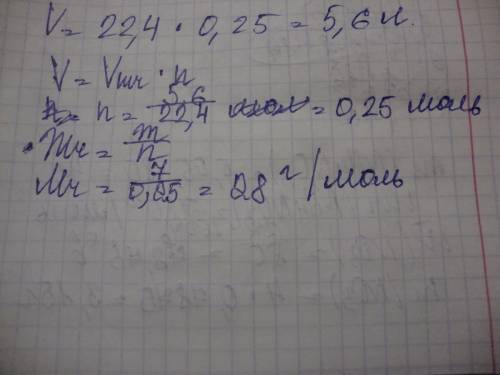 V = 22,4 · 0,25 = 5,6 л.
V = Vmr · n
n = n = 5,6/22,4 = 0,25 моль
Mr = m/n
Mr = 7/0,25 = 28 г/моль